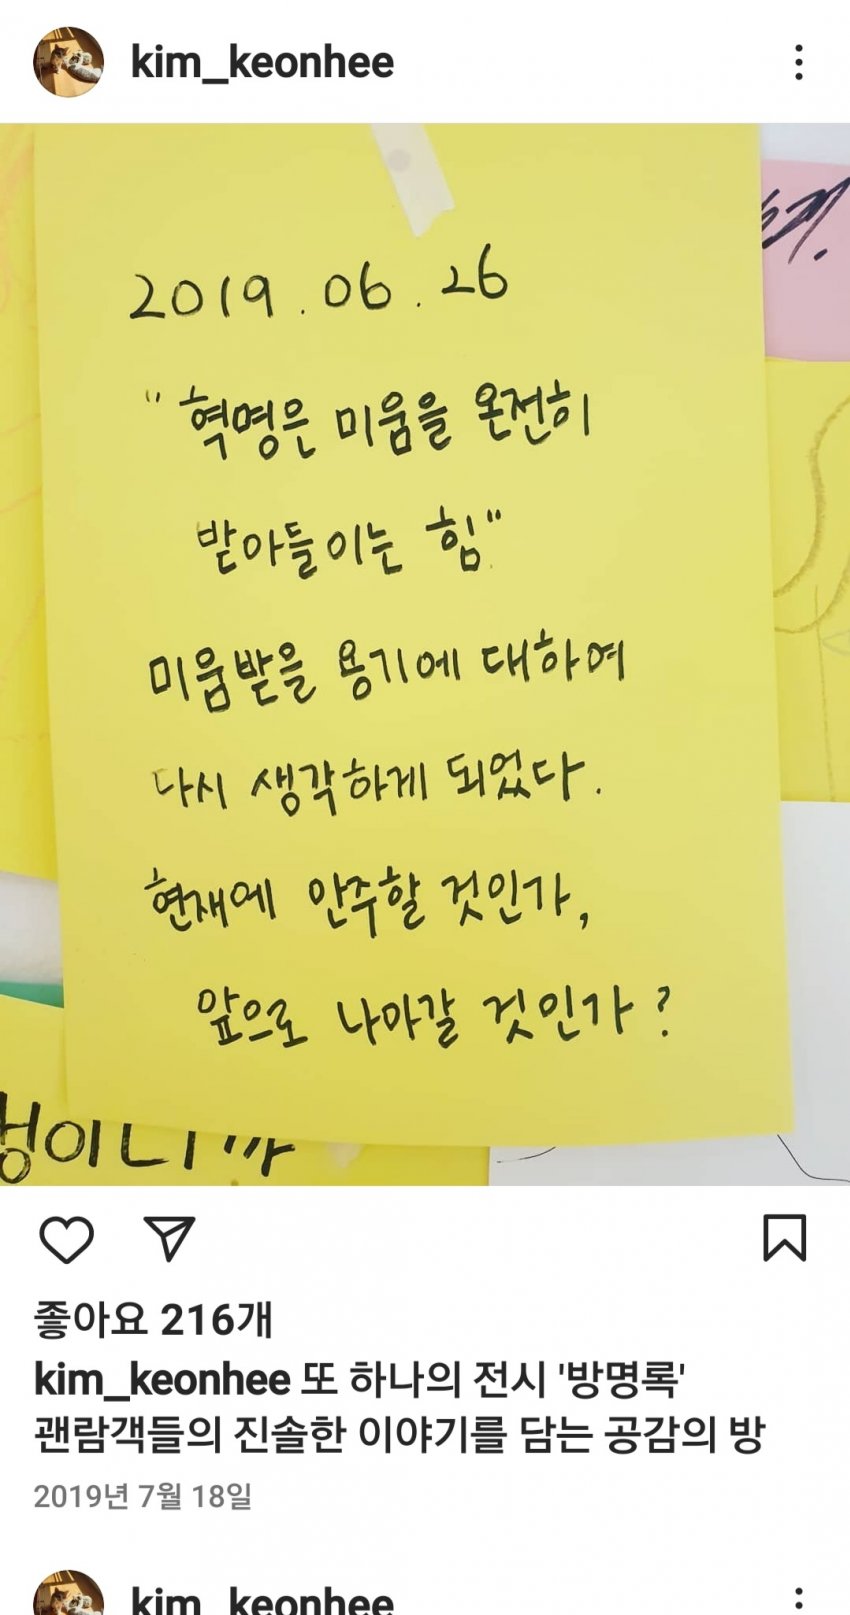 kim_keonhee
2019.06.26
"혁명은 미움을 온전히
받아들이는 힘"
미움받을 용기에 대하여
다시 생각하게 되었다.
현재에 안주할 것인가,
앞으로 나아갈 것인가?
좋아요 216개
kim_keonhee 또 하나의 전시 '방명록'
괜람객들의 진솔한 이야기를 담는 공감의 방
2019년 7월 18일
kim_keonhee